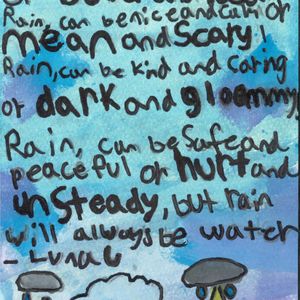 Rain, can be nice and calm or
mean and Scary!
Rain, can be kind and caring
or dark and gloommy,
Rain, can be Safe and
peaceful or hurt and
unSteady, but rain
will always be water
- Luna G